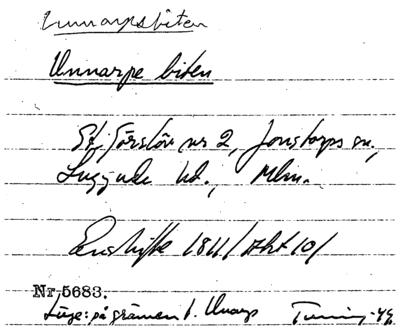 Unnarpsbiten
Unnarpe biten
St. Törslöv nr 2, Jonstorps sn.,
Luggude hd., Mlm.
Enskifte 1811/Akt 10/
Nr 5683.
Läge: på gränsen t. Unarp Tuning -49.